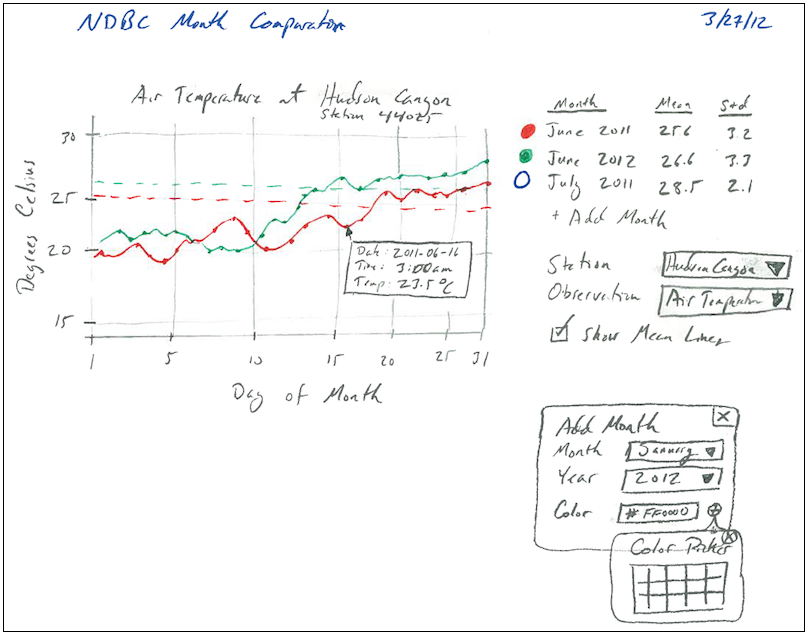 NDBC Month Comparison
3/27/12
Air Temperature at Hudson Canyon
Station 44025
Degrees Celsius
30
25
20
15
1 5 10 15 20 25 31
Day of Month
Date: 2011-06-16
Time: 3:00am
Temp: 23.5°C
Month Mean Std
June 2011 25.6 3.2
June 2012 26.6 3.3
July 2011 28.5 2.1
+ Add Month
Station Hudson Canyon
Observation Air Temperature
Show Mean Lines
Add Month X
Month January
Year 2012
Color #FF0000
Color Picker X